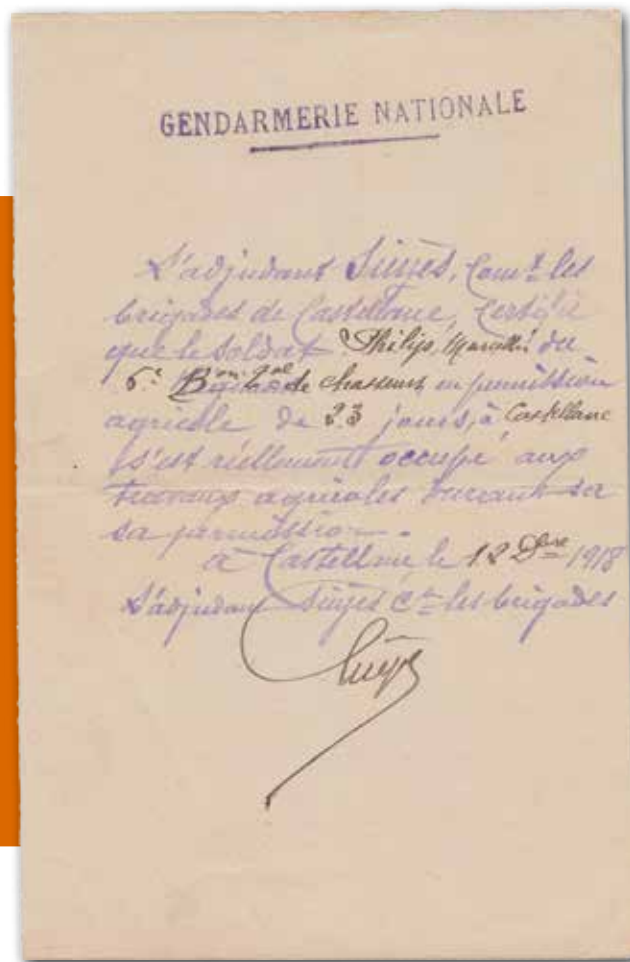 GENDARMERIE NATIONALE
L'adjudant Sinjès, Comt les
brigades de Castellane, Certifie
que le soldat Philip, Marcellin du
6e Bon de chasseurs en permission
agricole de 23 jours, à Castellane
s'est réellement occupé aux
travaux agricoles durant sa
sa permission.
à Castellane le 12 Dbre 1918
L'adjudant Sinjès Ct les brigades